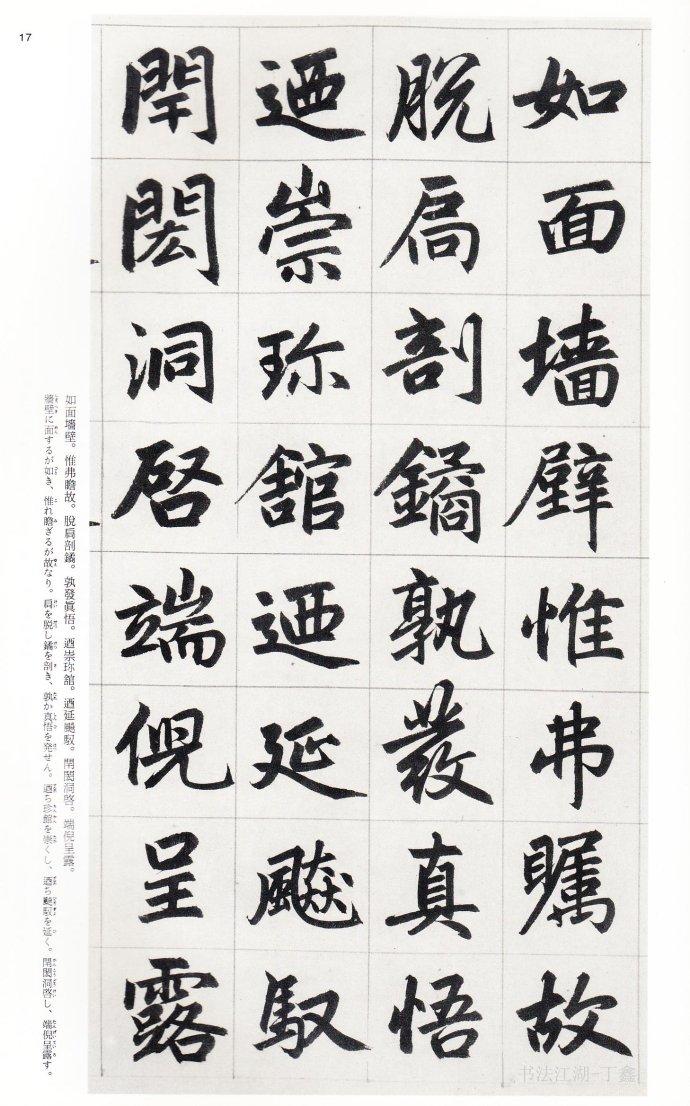 17
如面墻壁惟弗矚故
脱扃剖鐍孰發真悟
迺崇珎舘迺延飈馭
閈閎洞啓端倪呈露
如面墻壁。惟弗瞻故。脱扃剖鐍。孰發眞悟。迺崇珎舘。迺延飈馭。閈閎洞啓。端倪呈露。
牆壁に面するが如き、惟れ瞻ざるが故なり。扃を脱し鐍を剖き、孰か真悟を発せん。迺ち珍館を崇くし、迺ち飈馭を延く。閈閎洞啓し、端倪呈露す。
书法江湖-丁鑫